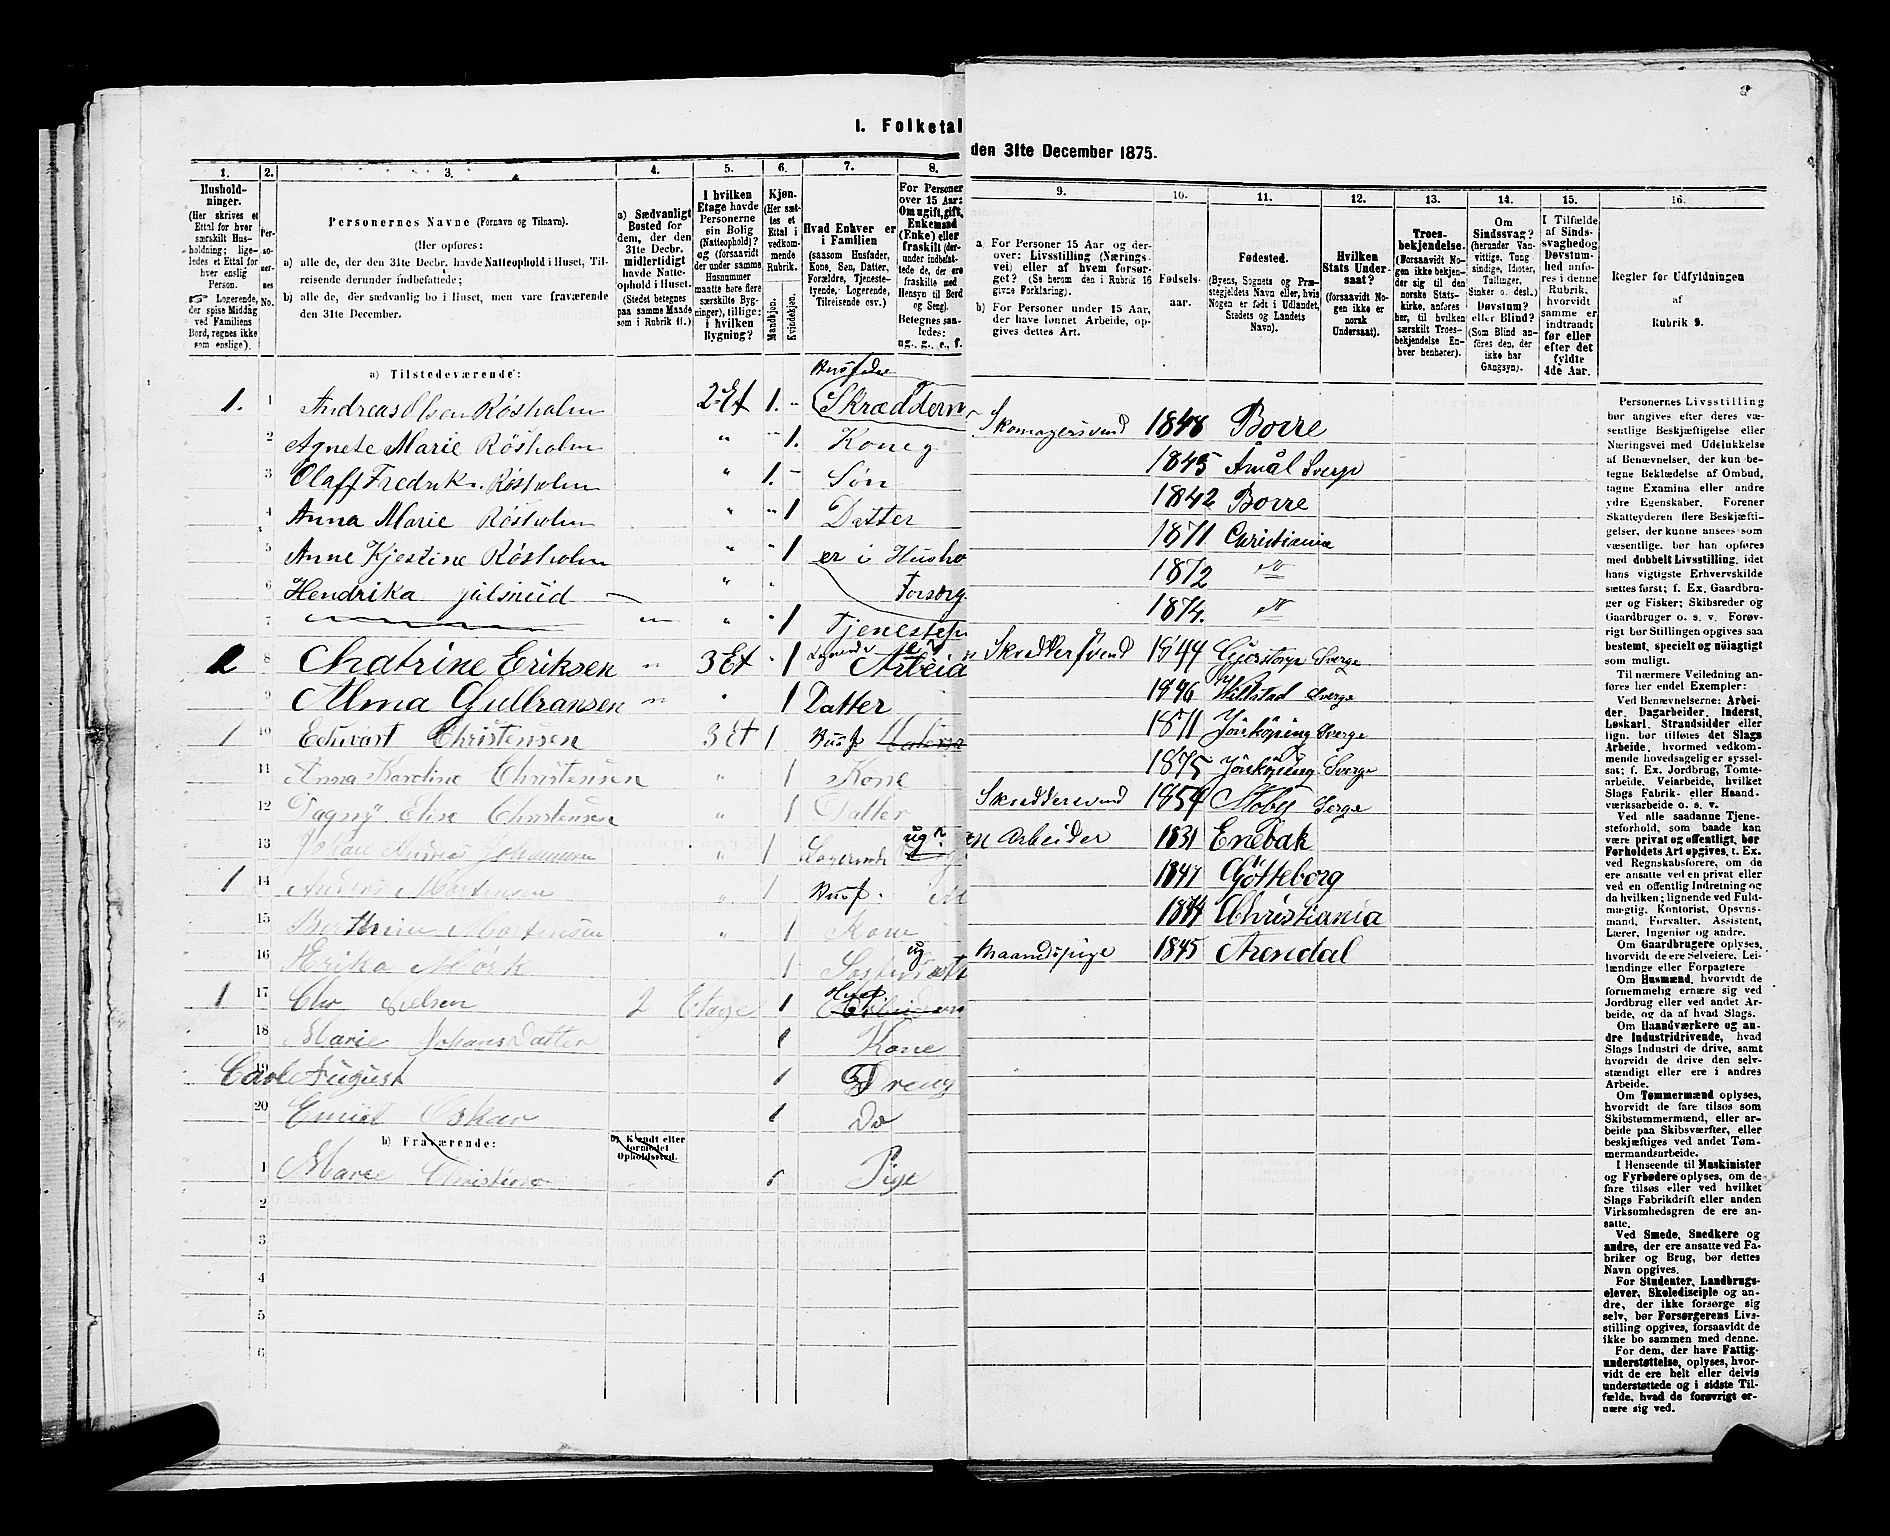 I. Folketal
1.
2.
3.
4.
5.
6.
7.
8.
Husholdninger.
(Her skrives et
Ettal for hver
særskilt Husholdning;
ligeledes et Ettal for
hver enslig
Person.
☞ Logerende,
der spise Middag
ved Familiens
Bord, regnes ikke
som enslige).
Personernes No.
Personernes Navne (Fornavn og Tilnavn).
(Her opføres:
a) alle de, der den 31te Decbr. havde Natteophold i Huset, Tilreisende derunder indbefattede;
b) alle de, der sædvanlig bo i Huset, men vare fraværende
den 31te December).
a) Sædvanligt
Bosted for
dem, der den
31te Decbr.
midlertidigt
havde Natteophold i Huset.
(Stedet betegnes
paa samme Maade
som i Rubrik 11.)
I hvilken
Etage havde
Personerne
sin Bolig
(Natteophold)?
og (forsaavidt
der under samme
Husnummer
maatte høre flere
særskilte Bygninger), tillige:
i hvilken
Bygning?
Kjøn.
(Her sættes et
Ettal i
vedkommende
Rubrik.
Mandkjøn.
Kvindekjøn.
Hvad Enhver er
i Familien
(saasom Husfader,
Kone, Søn, Datter,
Forældre, Tjenestetyende, Logerende,
Tilreisende osv.)
For Personer
over 15 Aar:
Om ugift, gift,
Enkemand
(Enke) eller
fraskilt
a) Tilstedeværende:
1. 1 Andreas Olsen Røsholm 2 Et 1. Skræddern
2 Agnete Marie Røsholm " 1. Kone g
3 Olaff Fredrik Røsholm " 1. Søn
4 Anna Marie Røsholm " 1 Datter
5 Anne Kjestine Røsholm " 1 er i Husho
6 Hendrika " Forsørg
7 " 1 Tjenestep
2 8 Chatrine Eriksen 3 Et 1 Logerende Arbeid
9 Alma Gulbransen " 1 Datter
1 10 Edwart Christensen 3 Et 1 Husf
11 Anna Karoline Christensen " 1 Kone
12 Dagny Elise Christensen " 1 Datter
13 Johan Andreas Johannsen " 1 Logerende ug
1 14 Anders Mortensen " 1 Husf.
15 Mortensen " 1 Kone
16 Erika Mörk 1 ug
1 17 Nelsen 2 Etage 1
18 Marie Johans Datter 1 Kone
19 Carl August 1 Dreng
20 Emiel Oskar 1 Do
b) Fraværende:
b) Kjendt eller
formodet
Opholdssted.
1 Maree Christiena Pige
2
3
4
5
6
den 31te December 1875.
9.
10.
11.
12.
13.
14.
15.
16.
a) For Personer 15 Aar og derover: Livsstilling (Næringsvei) eller af hvem forsørget? (Se herom den i Rubrik 16
givne Forklaring).
b) For Personer under 15 Aar,
der have lønnet Arbeide, opgives dettes Art.
Fødselsaar.
Fødested.
(Byens, Sognets og Præstegjeldets Navn eller, hvis
Nogen er født i Udlandet,
Stedets og Landets
Navn).
Hvilken
Stats Undersaat?
(forsaavidt Nogen ikke er
norsk
Undersaat).
Troesbekjendelse.
(Forsaavidt Nogen ikke bekjender sig til den
norske Statskirke, anføres
her, til hvilken
særskilt Troesbekjendelse Enhver henhører).
Om
Sindssvag?
(herunder Vanvittige, Tungsindige, Idioter,
Tullinger,
Sinker o. desl.)
Døvstum?
eller Blind?
(Som Blind anføres den, der
ikke har
Gangsyn).
I Tilfælde
af Sindssvaghed og
Døvstumhed anføres i denne
Rubrik,
hvorvidt
samme er
indtraadt
før eller
efter det
fyldte
4de Aar.
Regler for Udfyldningen
af
Rubrik 9.
Skomagersvend 1848 Borre
1845 Åmål Sverge
1842 Borre
1871 Christiania
1872
1874.
Skrædderfvend 1844 Sverge
1846 Sverge
1871 Jönköping Sverge
1875 Jönköping Sverge
Skræddersvend 1854
Arbeider 1831 Enebak
1847 Götteborg
1844 Christiania
Maandspige 1845 Arendal
Personernes Livsstilling
bør angives efter deres væsentlige Beskjæftigelse eller
Næringsvei med Udelukkelse
af Benævnelser, der kun betegne Beklædelse af Ombud,
tagne Examina eller andre
ydre Egenskaber. Forener
Skatteyderen flere Beskjæftigelser, der kunne ansees som
væsentlige, bør han opføres
med dobbelt Livsstilling, idet
hans vigtigste Erhvervskilde
sættes først; f. Ex. Gaardbruger og Fisker; Skibsreder og
Gaardbruger o. s. v. Forøvrigt bør Stillingen opgives saa
bestemt, specielt og nøiagtigt
som muligt.
Til nærmere Veiledning anføres her endel Exempler:
Ved Benævnelserne: Arbeider, Dagarbeider, Inderst,
Løskarl, Strandsidder eller
lign. bør tilføies det Slags
Arbeide, hvormed vedkommende hovedsagelig er sysselsat; f. Ex. Jordbrug, Tomtearbeide, Veiarbeide, hvilket
Slags Fabrik- eller Haandværksarbeide o. s. v.
Ved alle saadanne Tjenesteforhold, som baade kan
være privat og offentligt, bør
Forholdets Art opgives, t. Ex.
ved Regnskabsførere, om de
ere ansatte ved en privat eller
ved en offentlig Indretning og
da hvilken; lignende ved Fuldmægtig, Kontorist, Opsynsmand, Forvalter, Assistent,
Lærer, Ingeniør og andre.
Om Gaardbrugere oplyses,
hvorvidt de ere Selveiere, Leilændinge eller Forpagtere
Om Husmænd, hvorvidt de
fornemmelig ernære sig ved
Jordbrug eller ved andet Arbeide, og da af hvad Slags.
Om Haandværkere og andre Industridrivende, hvad
Slags Industri de drive, samt
hvorvidt de drive den selvstændigt eller ere i andres
Arbeide.
Om Tømmermænd oplyses,
hvorvidt de fare tilsøs som
Skibstømmermænd, eller arbeide paa Skibsværfter, eller
beskjæftiges ved andet Tømmermandsarbeide.
I Henseende til Maskinister
og Fyrbødere oplyses, om de
fare tilsøs eller ved hvilket
Slags Fabrikdrift eller anden
Virksomhedsgren de ere ansatte.
Ved Smede, Snedkere og
andre, der ere ansatte ved Fabriker og Brug, bør dettes
Navn opgives.
For Studenter, Landbrugselever, Skoledisciple og andre, der ikke forsørge sig
selv, bør Forsørgerens Livsstilling opgives, forsaavidt de
ikke bo sammen med denne.
For dem, der have Fattigunderstøttelse, oplyses, hvorvidt de ere helt eller delvis
understøttede og i sidste Tilfælde, hvad de forøvrigt ernære sig ved.